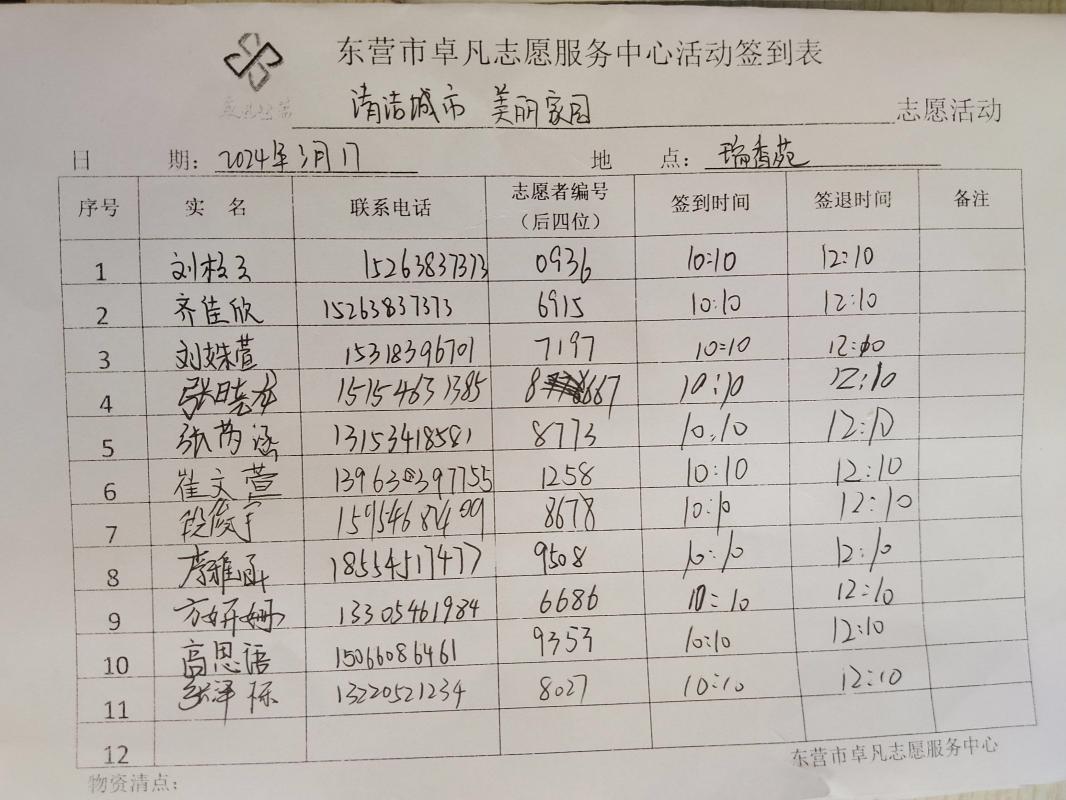 东营市卓凡志愿服务中心活动签到表
清洁城市 美丽家园 志愿活动
日 期: 2024年3月17 地 点: 瑞香苑
序号 实 名 联系电话 志愿者编号 (后四位) 签到时间 签退时间 备注
1 刘 15263837373 0936 10:10 12:10
2 齐佳欣 15263837373 6915 10:10 12:10
3 刘姝萱 15318396701 7197 10:10 12:10
4 张晓 15154631385 8667 10:10 12:10
5 张芮涵 13153418581 8773 10:10 12:10
6 崔文萱 1258 10:10 12:10
7 段俊宇 8678 10:10 12:10
8 雅涵 18554517477 9508 10:10 12:10
9 方妍姗 13305461984 6686 10:10 12:10
10 高思语 15066086461 9353 10:10 12:10
11 张泽栋 13220521234 8027 10:10 12:10
12
物资清点:
东营市卓凡志愿服务中心